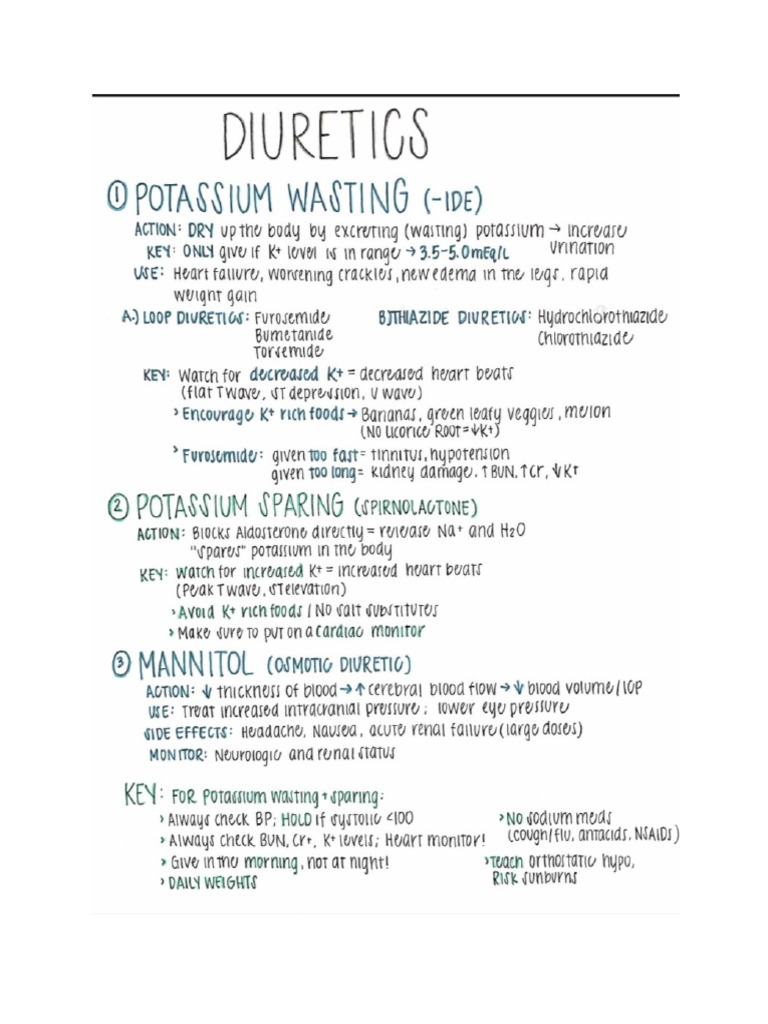 DIURETICS
① POTASSIUM WASTING (-IDE)
ACTION: DRY up the body by excreting (wasting) potassium → increase urination
KEY: ONLY give if K+ level is in range → 3.5-5.0mEq/L
USE: Heart failure, worsening crackles, new edema in the legs, rapid
weight gain
A.) LOOP DIURETICS: Furosemide
Bumetanide
Torsemide
B.) THIAZIDE DIURETICS: Hydrochlorothiazide
Chlorothiazide
KEY: Watch for decreased K+ = decreased heart beats
(flat T wave, ST depression, U wave)
› Encourage K+ rich foods → Bananas, green leafy veggies, melon
(NO Licorice ROOT=↓K+)
› Furosemide: given too fast = tinnitus, hypotension
given too long = kidney damage, ↑BUN, ↑Cr, ↓K+
② POTASSIUM SPARING (SPIRNOLACTONE)
ACTION: Blocks Aldosterone directly = release Na+ and H2O
"spares" potassium in the body
KEY: Watch for increased K+ = increased heart beats
(Peak T wave, ST elevation)
› Avoid K+ rich foods / NO salt substitutes
› Make sure to put on a cardiac monitor
③ MANNITOL (OSMOTIC DIURETIC)
ACTION: ↓ thickness of blood → ↑ cerebral blood flow → ↓ blood volume/ICP
USE: Treat increased intracranial pressure; lower eye pressure
SIDE EFFECTS: Headache, Nausea, acute renal failure (large doses)
MONITOR: Neurologic and renal status
KEY: FOR Potassium Wasting + sparing:
› Always check BP; HOLD if systolic <100
› Always check BUN, Cr+, K+ levels; Heart monitor!
› Give in the morning, not at night!
› DAILY WEIGHTS
› No sodium meds
(cough/flu, antacids, NSAIDS)
› Teach orthostatic hypo,
RISK sunburns